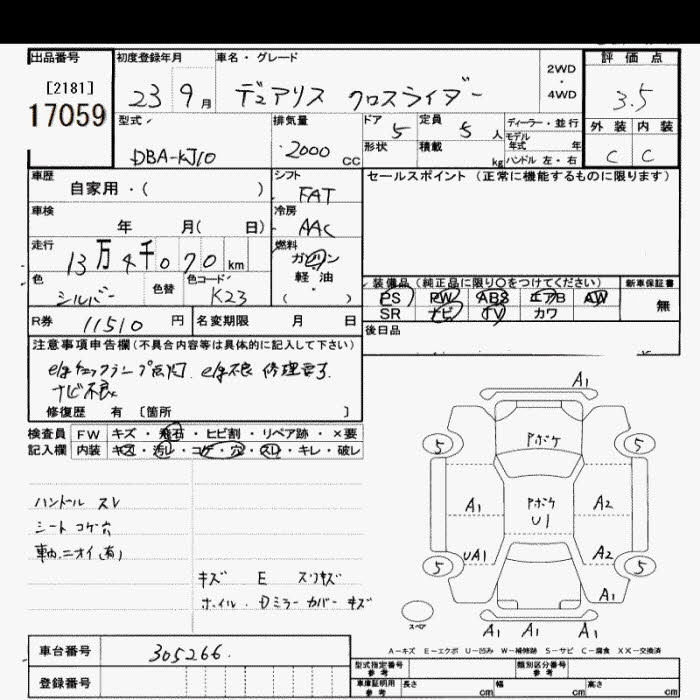 出品番号
[2181]
17059
初度登録年月
23 9 月
車名・グレード
デュアリス クロスライダー
2WD
・
4WD
評価点
3.5
外装 内装
C C
型式
DBA-KJ10
排気量
2000 cc
ドア 5
定員 5 人
ディーラー・並行
モデル年式 年
形状
積載 kg
ハンドル 左・右
車歴
自家用・( )
シフト
FAT
セールスポイント (正常に機能するものに限ります)
車検
年 月( 日)
冷房
AAC
走行
13万4千070 km
燃料
ガソリン
軽・油
( )
色
シルバー
色替
色コード
K23
装備品(純正品に限り○をつけてください)
PS PW ABS エアB AW
SR ナビ TV カワ
新車保証書
無
R券 11510 円
名変期限 月 日
後日品
注意事項申告欄(不具合内容等は具体的に記入して下さい)
e/gチェックランプ点灯. e/g不良 修理要す.
ナビ不良
修復歴 有 〔箇所 〕
検査員 FW キズ・飛石・ヒビ割・リペア跡・×要
記入欄 内装 キズ・汚レ・コゲ・穴・スレ・キレ・破レ
ハンドル スレ
シート コゲ穴
車内ニオイ(有)
キズ E スリキズ
ホイル・Dミラーカバー キズ
A1
アボケ
5 5
アボケ
U1
A1 A2
UA1 A2
5 5
A1
スペア
A1 A1 A1
A-キズ E-エクボ U-凹み W-補修跡 S-サビ C-腐食 XX-交換済
車台番号
305266
登録番号
型式指定番号
参考
類別区分番号
参考
車庫証明用
参考
長さ cm
幅 cm
高さ cm